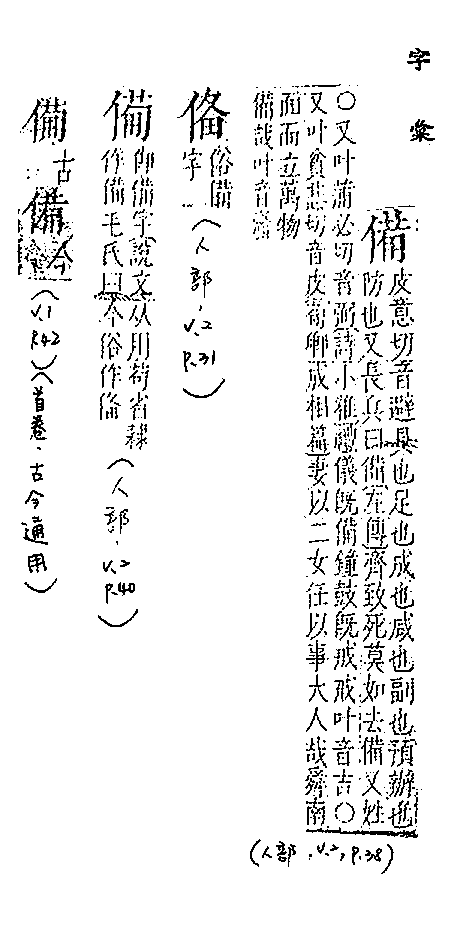 字彙
備
皮意切音避具也足也成也咸也副也預辦也
防也又長兵曰備左傳齊致死莫如去備又姓
○又叶蒲必切音弼詩小雅禮儀既備鐘鼓既戒戒叶音吉○
又叶貧悲切音皮荀卿成相篇妻以二女任以事大人哉舜南
面而立萬物
備哉叶音
(人部,V.2,P.38)
俻
俗備
字
(人部,V.2
P.31)
俻
即備字說文从用苟省隸
作備毛氏曰今俗作俻
(人部,V.2
P.40)
古
備
今
(V.1
P.42)
(首卷,古今通用)